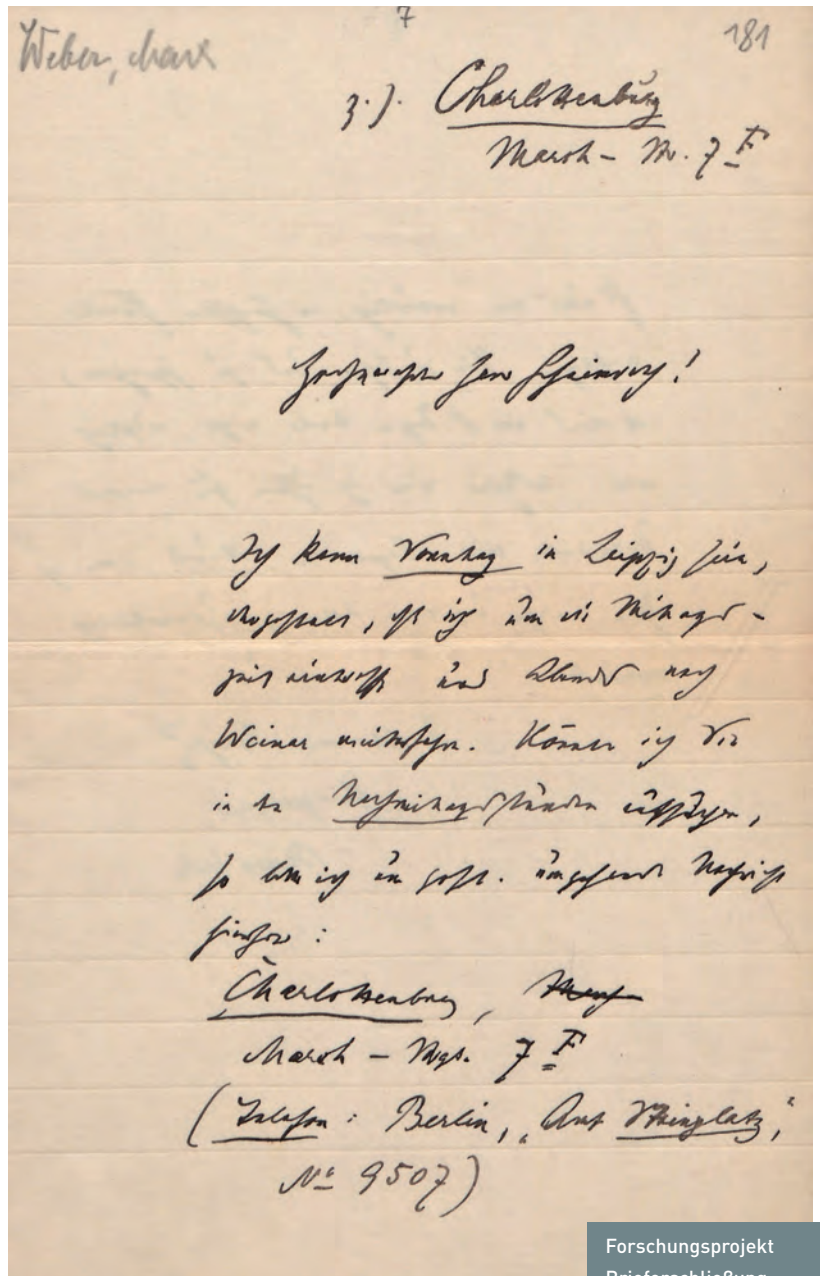 Weber, Max
7
181
z. Z. Charlottenburg
March-Str. 7 F
Hochgeehrter Herr Geheimrath!
Ich kann Sonntag in Leipzig sein,
dergestalt, daß ich um die Mittags-
zeit eintreffe und Abends nach
Weimar weiterfahre. Könnte ich Sie
in den Nachmittagsstunden aufsuchen,
so bitte ich um gefl. umgehende Nachricht
hierher:
Charlottenburg, March
March-Str. 7 F
(Telefon: Berlin, "Amt Steinplatz",
No 9507)
Forschungsprojekt
Brieferschließung